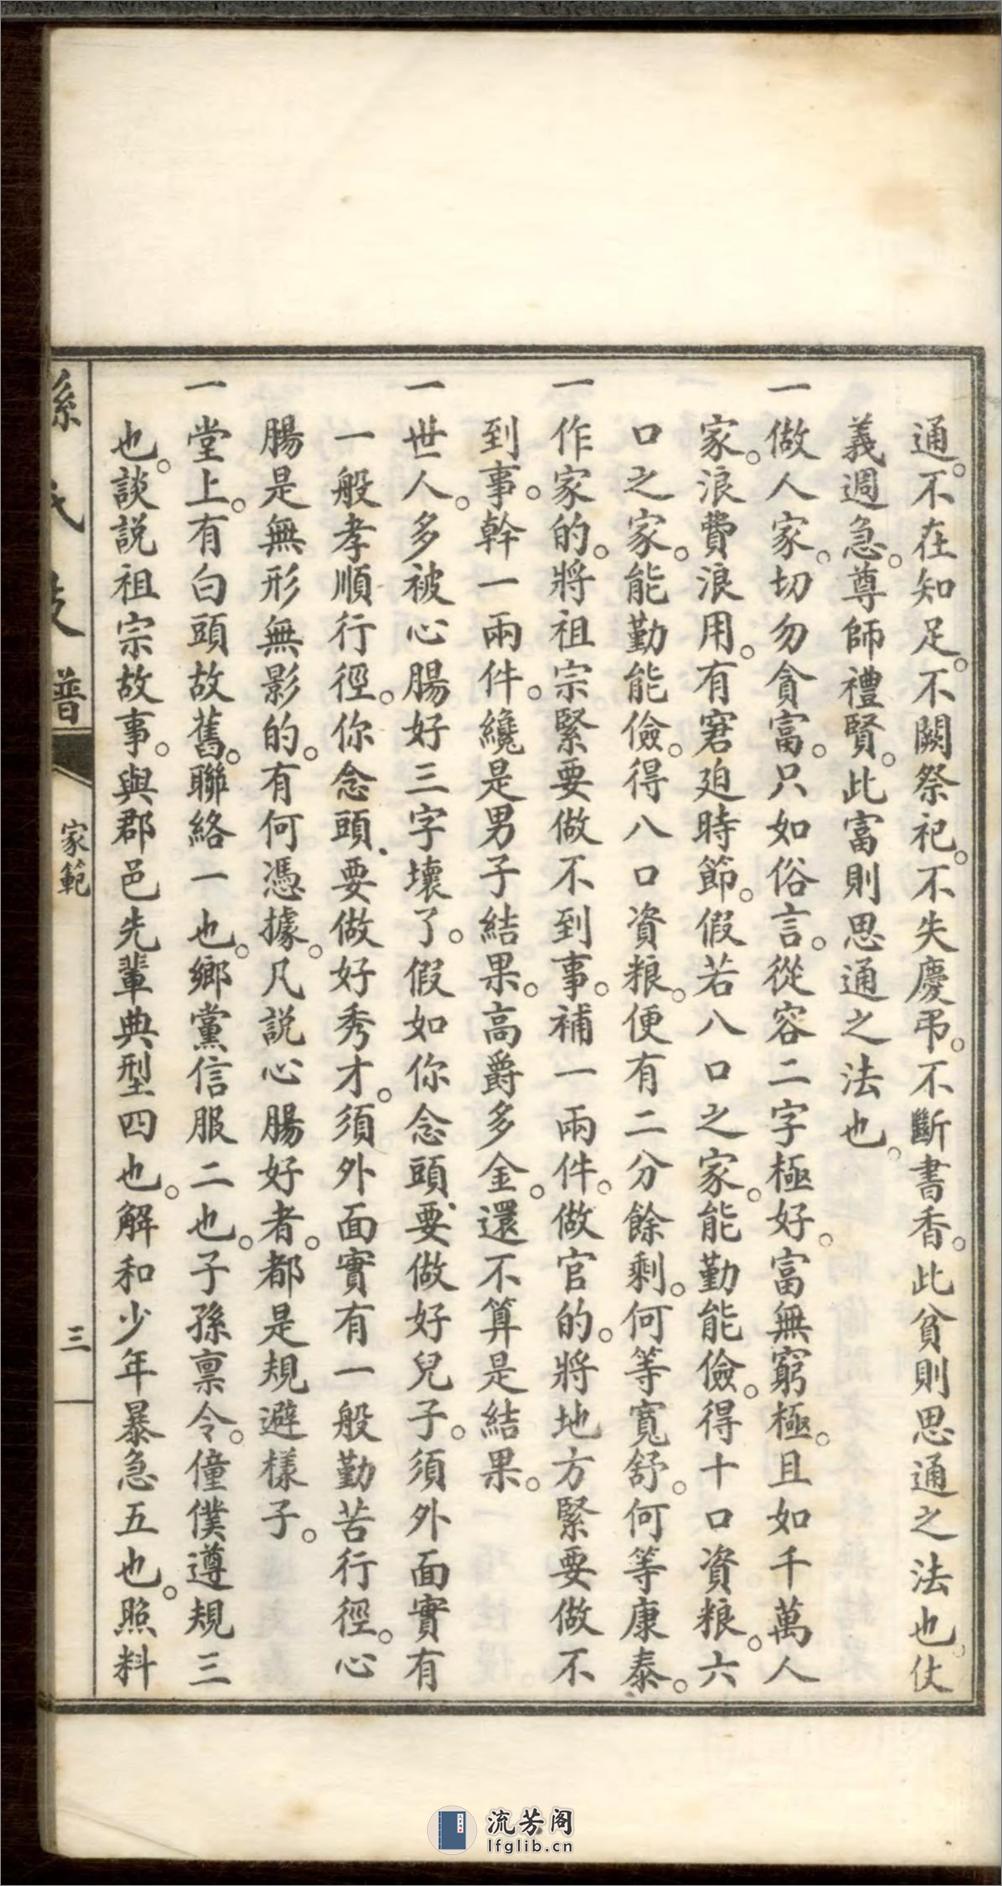 通。不在知足。不闕祭祀。不失慶弔。不斷書香。此貧則思通之法也。仗
義週急。尊師禮賢。此富則思通之法也。
一做人家。切勿貪富。只如俗言。從容二字極好。富無窮極。且如千萬人
家。浪費浪用。有窘廹時節。假若八口之家。能勤能儉。得十口資粮。六
口之家。能勤能儉。得八口資粮。便有二分餘剩。何等寬舒。何等康泰。
一作家的。將祖宗緊要做不到事。補一兩件。做官的。將地方緊要做不
到事。幹一兩件。纔是男子結果。高爵多金。還不算是結果。
一世人。多被心腸好三字壞了。假如你念頭、要做好兒子。須外面實有
一般孝順行徑。你念頭、要做好秀才。須外面實有一般勤苦行徑。心
腸是無形無影的。有何憑據。凡說心腸好者。都是規避樣子。
一堂上。有白頭故舊。聯絡一也。鄉黨信服二也。子孫禀令。僮僕遵規三
也。談說祖宗故事。與郡邑先輩典型四也。解和少年暴急五也。照料
孫氏支譜
家範
三
流芳阁
lfglib.cn